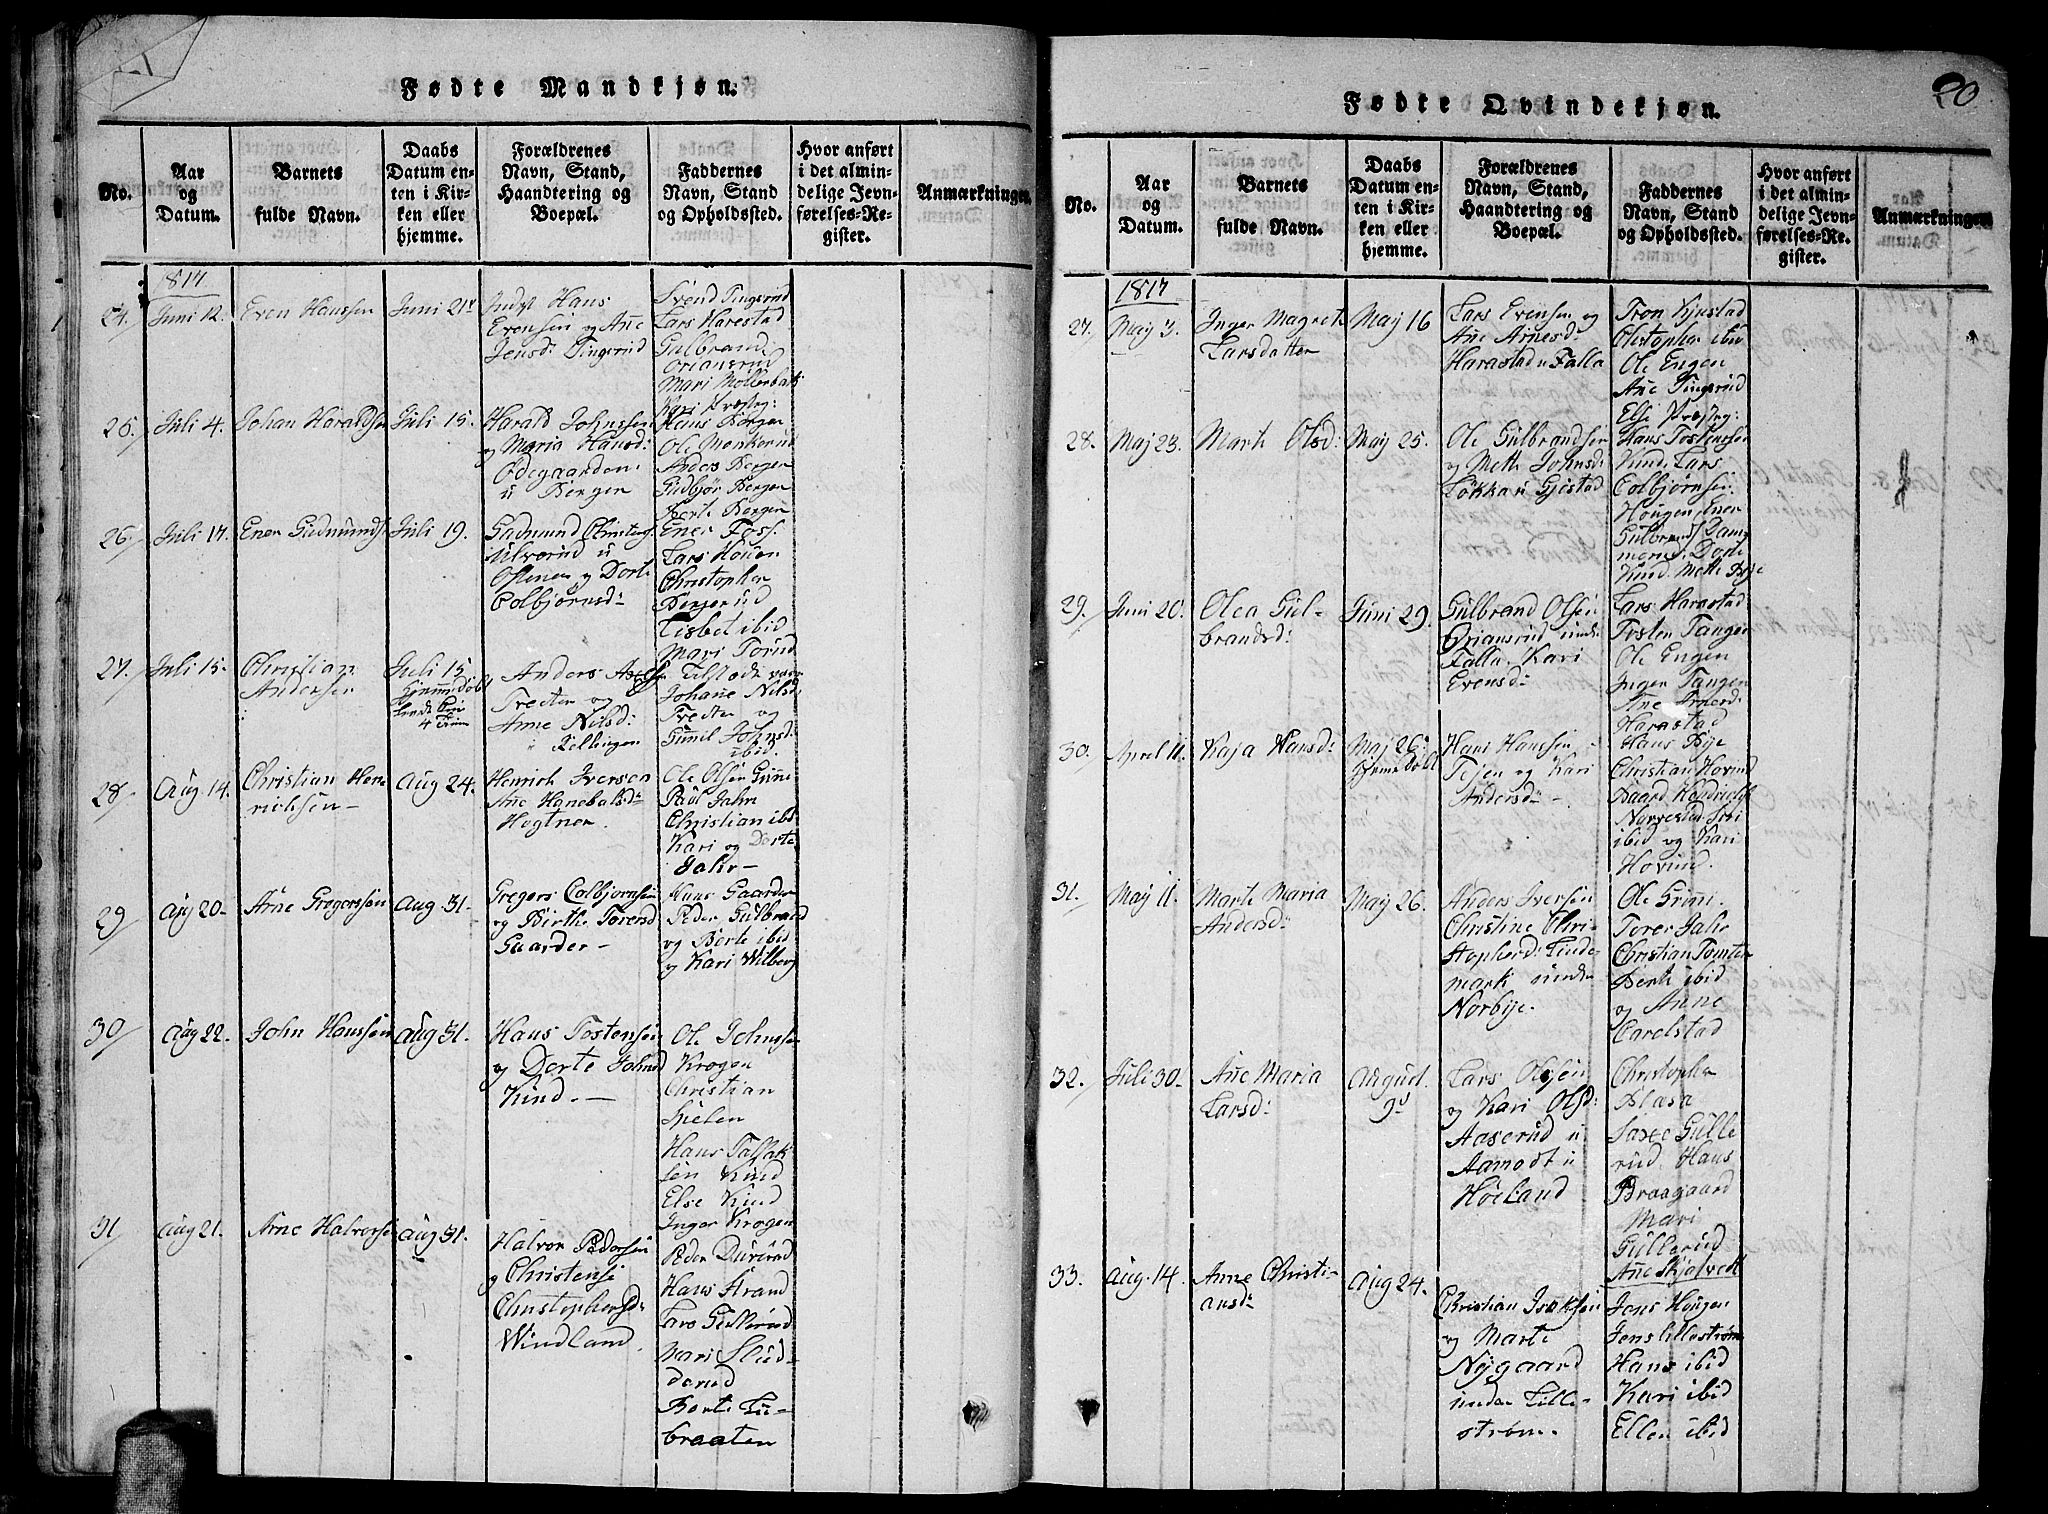 Fødte Mandkjøn.
No.
Aar
og
Datum.
Barnets
fulde Navn.
Daabs
Datum en-
ten i Kir-
ken eller
hjemme.
Forældrenes
Navn, Stand,
Haandtering og
Boepæl.
Faddernes
Navn, Stand
og Opholdssted.
Hvor anført
i det almin-
delige Jevn-
førelses-Re-
gister.
Anmærkninger
1817
24.
Juni 12.
Even Hanssen
Juni 21
Indst Hans
Evensen og Ane
Jensd: Tingsrud
Svend Tingsrud
Lars Harestad
Gulbrand
Oriansrud
Mari Mollerbak
Kari Præsteg:
25.
Juli 4.
Johan Haraldsen
Juli 15.
Harald Johnssen
og Maria Hansd:
Ødegaarden
u Bergen
Hans Bergen
Ole Menkerud
Anders Bergen
Gudbjør Bergen
Berte Bergen
26.
Juli 17.
Ener Gudmunds
Juli 19.
Gudmund Christens
Ulverud u
Ofsten og Dorte
Colbjørnsd:
Ener Foss.
Lars Houen
Christopher
Bergerud
Lisbet ibid
Mari Torud
27.
Juli 15.
Christian
Andersen
Juli 15
Hjemmedøbt
Anders
Tveeter og
Anne Nilsd:
Killingen
Tilstede vare
Johane Nilsd
Tveeter og
Gunil Johnsd
ibid.
28
Aug 14.
Christian Hen
richsen
Aug 24.
Henrich Iversen
Ane Hanebalsd:
Hogtner
Ole Olsen Grine
Paul Jahr
Christian ibid
Kari og Dorte
Jahr
29
Aug 20
Arne Gregerssen
Aug 31.
Gregers Colbjørnsen
og Birthe Toresd
Gaarder
Hans Gaarder
Peder Gulbrand
og Berte ibid
og Kari Wilberg
30
Aug 22.
John Hanssen
Aug 31.
Hans Tostensen
og Dorte Johnsd
Kind.
Ole Johnssen
Krogen
Christian
Spielen
Hans Tallak
sen Kind
Else Kind
Inger Krogen
31
Aug 21.
Arne Halvorsen
Aug 31.
Halvor Pedersen
og Christense
Christophersd:
Windland
Peder Dururud
Hans Strand
Lars Gullerud
Mari Slud
derud
Berte Lu-
braaten
20
Fødte Qvindekjøn.
No.
Aar
og
Datum.
Barnets
fulde Navn.
Daabs
Datum en-
ten i Kir-
ken eller
hjemme.
Forældrenes
Navn, Stand,
Haandtering og
Boepæl.
Faddernes
Navn, Stand
og Opholdssted.
Hvor anført
i det almin-
delige Jevn-
førelses-Re-
gister.
Anmærkninger
1817
27.
May 3.
Inger Magrete
Larsdatter
May 16
Lars Evensen og
Ane Arnesd:
Harastad u Falla
Tron Kjustad
Christopher ibid
Ole Engen
Ane Tingsrud
Else Præsteg:
28.
Maj 23.
Marte Olsd:
May 25.
Ole Gulbrandsen
og Mette Johnsd:
Løkka u Gjestad
Hans Tostensen
Kind, Lars
Colbjørnsen
Hougen, Ener
Gulbrands Ram
merud, Dorte
Kind, Mette Bye
29.
Juni 20.
Olea Gul-
brandsd:
Juni 29.
Gulbrand Olsen
Oriansrud unde
Falla, Kari
Evensd:
Lars Harastad
Tosten Tangen
Ole Engen
Inger Tangen
Ane Arnesd:
Harastad
30.
April 11.
Kaja Hansd:
Maj 26:
hjeme døbt
Hans Hanssen
Tejen og Kari
Andersd:
Hans Bye
Christian Hovind
Baard Hendrichs
Norrestad Siri
ibid og Kari
Hovind.
31.
May 11.
Marte Maria
Andersd:
May 26.
Anders Iversen
Christine Chri-
stophersd: Linde-
mark under
Norbye.
Ole Grini.
Torer Jahr
Christian Tomten
Berte ibid
og Anne
Carelstad
32.
Juli 30.
Ane Maria
Larsd:
August
9d
Lars Olsen
og Kari Olsd:
Aaserud u
Aamodt u
Høeland
Christopher
Blasa
Saxe Gulle
rud. Hans
Braagaard
Mari
Gullerud
Ane Skjølvedt
33.
Aug. 14.
Anne Christi-
ansd:
Aug 24.
Christian Isaksen
og Marte
Nygaard
under Lille-
strøm.
Jens Hougen
Jens Lillestrøm
Hans ibid
Kari ibid
Ellen ibid